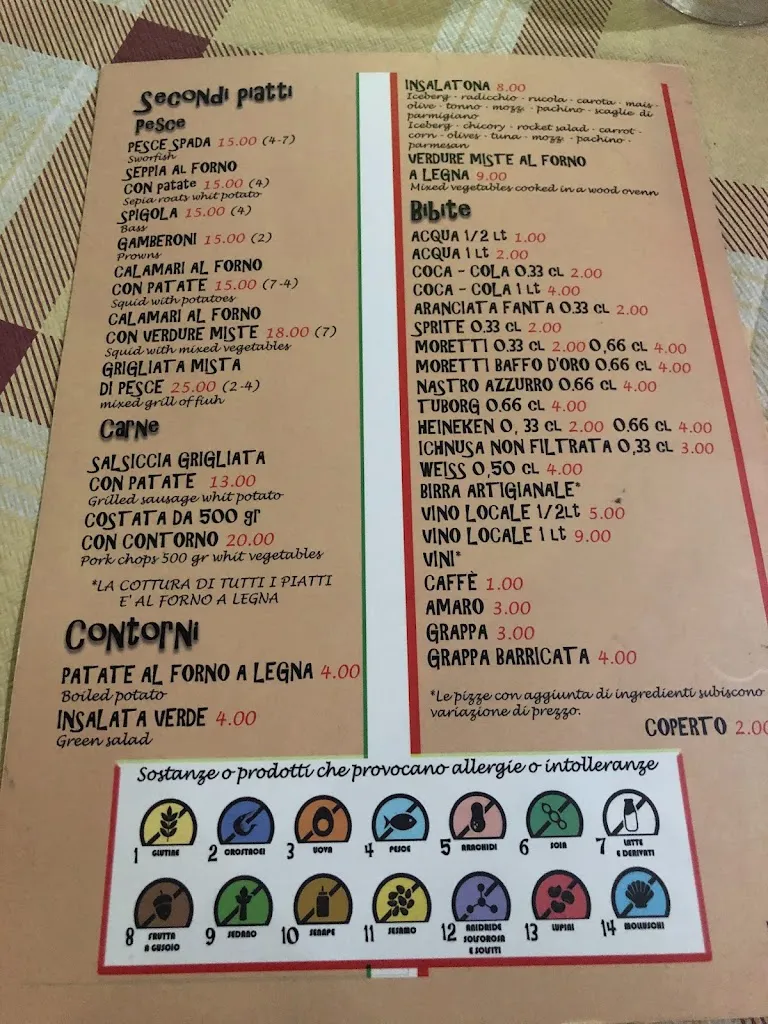 Secondi piatti
Pesce
PESCE SPADA 15.00 (4-7)
Sworfish
SEPPIA AL FORNO
CON patate 15.00 (4)
Sepia roats whit potato
SPIGOLA 15.00 (4)
Bass
GAMBERONI 15.00 (2)
Prowns
CALAMARI AL FORNO
CON PATATE 15.00 (7-4)
Squid with potatoes
CALAMARI AL FORNO
CON VERDURE MISTE 18.00 (7)
Squid with mixed vegetables
GRIGLIATA MISTA
DI PESCE 25.00 (2-4)
mixed grill of fiuh
Carne
SALSICCIA GRIGLIATA
CON PATATE 13.00
Grilled sausage whit potato
COSTATA DA 500 gr
CON CONTORNO 20.00
Pork chops 500 gr whit vegetables
*LA COTTURA DI TUTTI I PIATTI
E' AL FORNO A LEGNA
Contorni
PATATE AL FORNO A LEGNA 4.00
Boiled potato
INSALATA VERDE 4.00
Green salad
INSALATONA 8.00
Iceberg - radicchio - rucola - carota - mais -
olive - tonno - mozz - pachino - scaglie di
parmigiano
Iceberg - chicory - rocket salad - carrot -
corn - olives - tuna - mozz - pachino -
parmesan
VERDURE MISTE AL FORNO
A LEGNA 9.00
Mixed vegetables cooked in a wood ovenn
Bibite
ACQUA 1/2 Lt 1.00
ACQUA 1 Lt 2.00
COCA - COLA 0,33 CL 2.00
COCA - COLA 1 Lt 4.00
ARANCIATA FANTA 0.33 CL 2.00
SPRITE 0.33 CL 2.00
MORETTI 0.33 CL 2.00 0,66 CL 4.00
MORETTI BAFFO D'ORO 0.66 CL 4.00
NASTRO AZZURRO 0.66 CL 4.00
TUBORG 0.66 CL 4.00
HEINEKEN 0, 33 CL 2.00 0.66 CL 4.00
ICHNUSA NON FILTRATA 0,33 CL 3.00
WEISS 0,50 CL 4.00
BIRRA ARTIGIANALE*
VINO LOCALE 1/2Lt 5.00
VINO LOCALE 1 Lt 9.00
VINI*
CAFFÈ 1.00
AMARO 3.00
GRAPPA 3.00
GRAPPA BARRICATA 4.00
*Le pizze con aggiunta di ingredienti subiscono
variazione di prezzo.
COPERTO 2.00
Sostanze o prodotti che provocano allergie o intolleranze
1 GLUTINE 2 CROSTACEI 3 UOVA 4 PESCE 5 ARACHIDI 6 SOIA 7 LATTE E DERIVATI
8 FRUTTA A GUSCIO 9 SEDANO 10 SENAPE 11 SESAMO 12 ANIDRIDE SOLFOROSA E SOLFITI 13 LUPINI 14 MOLLUSCHI